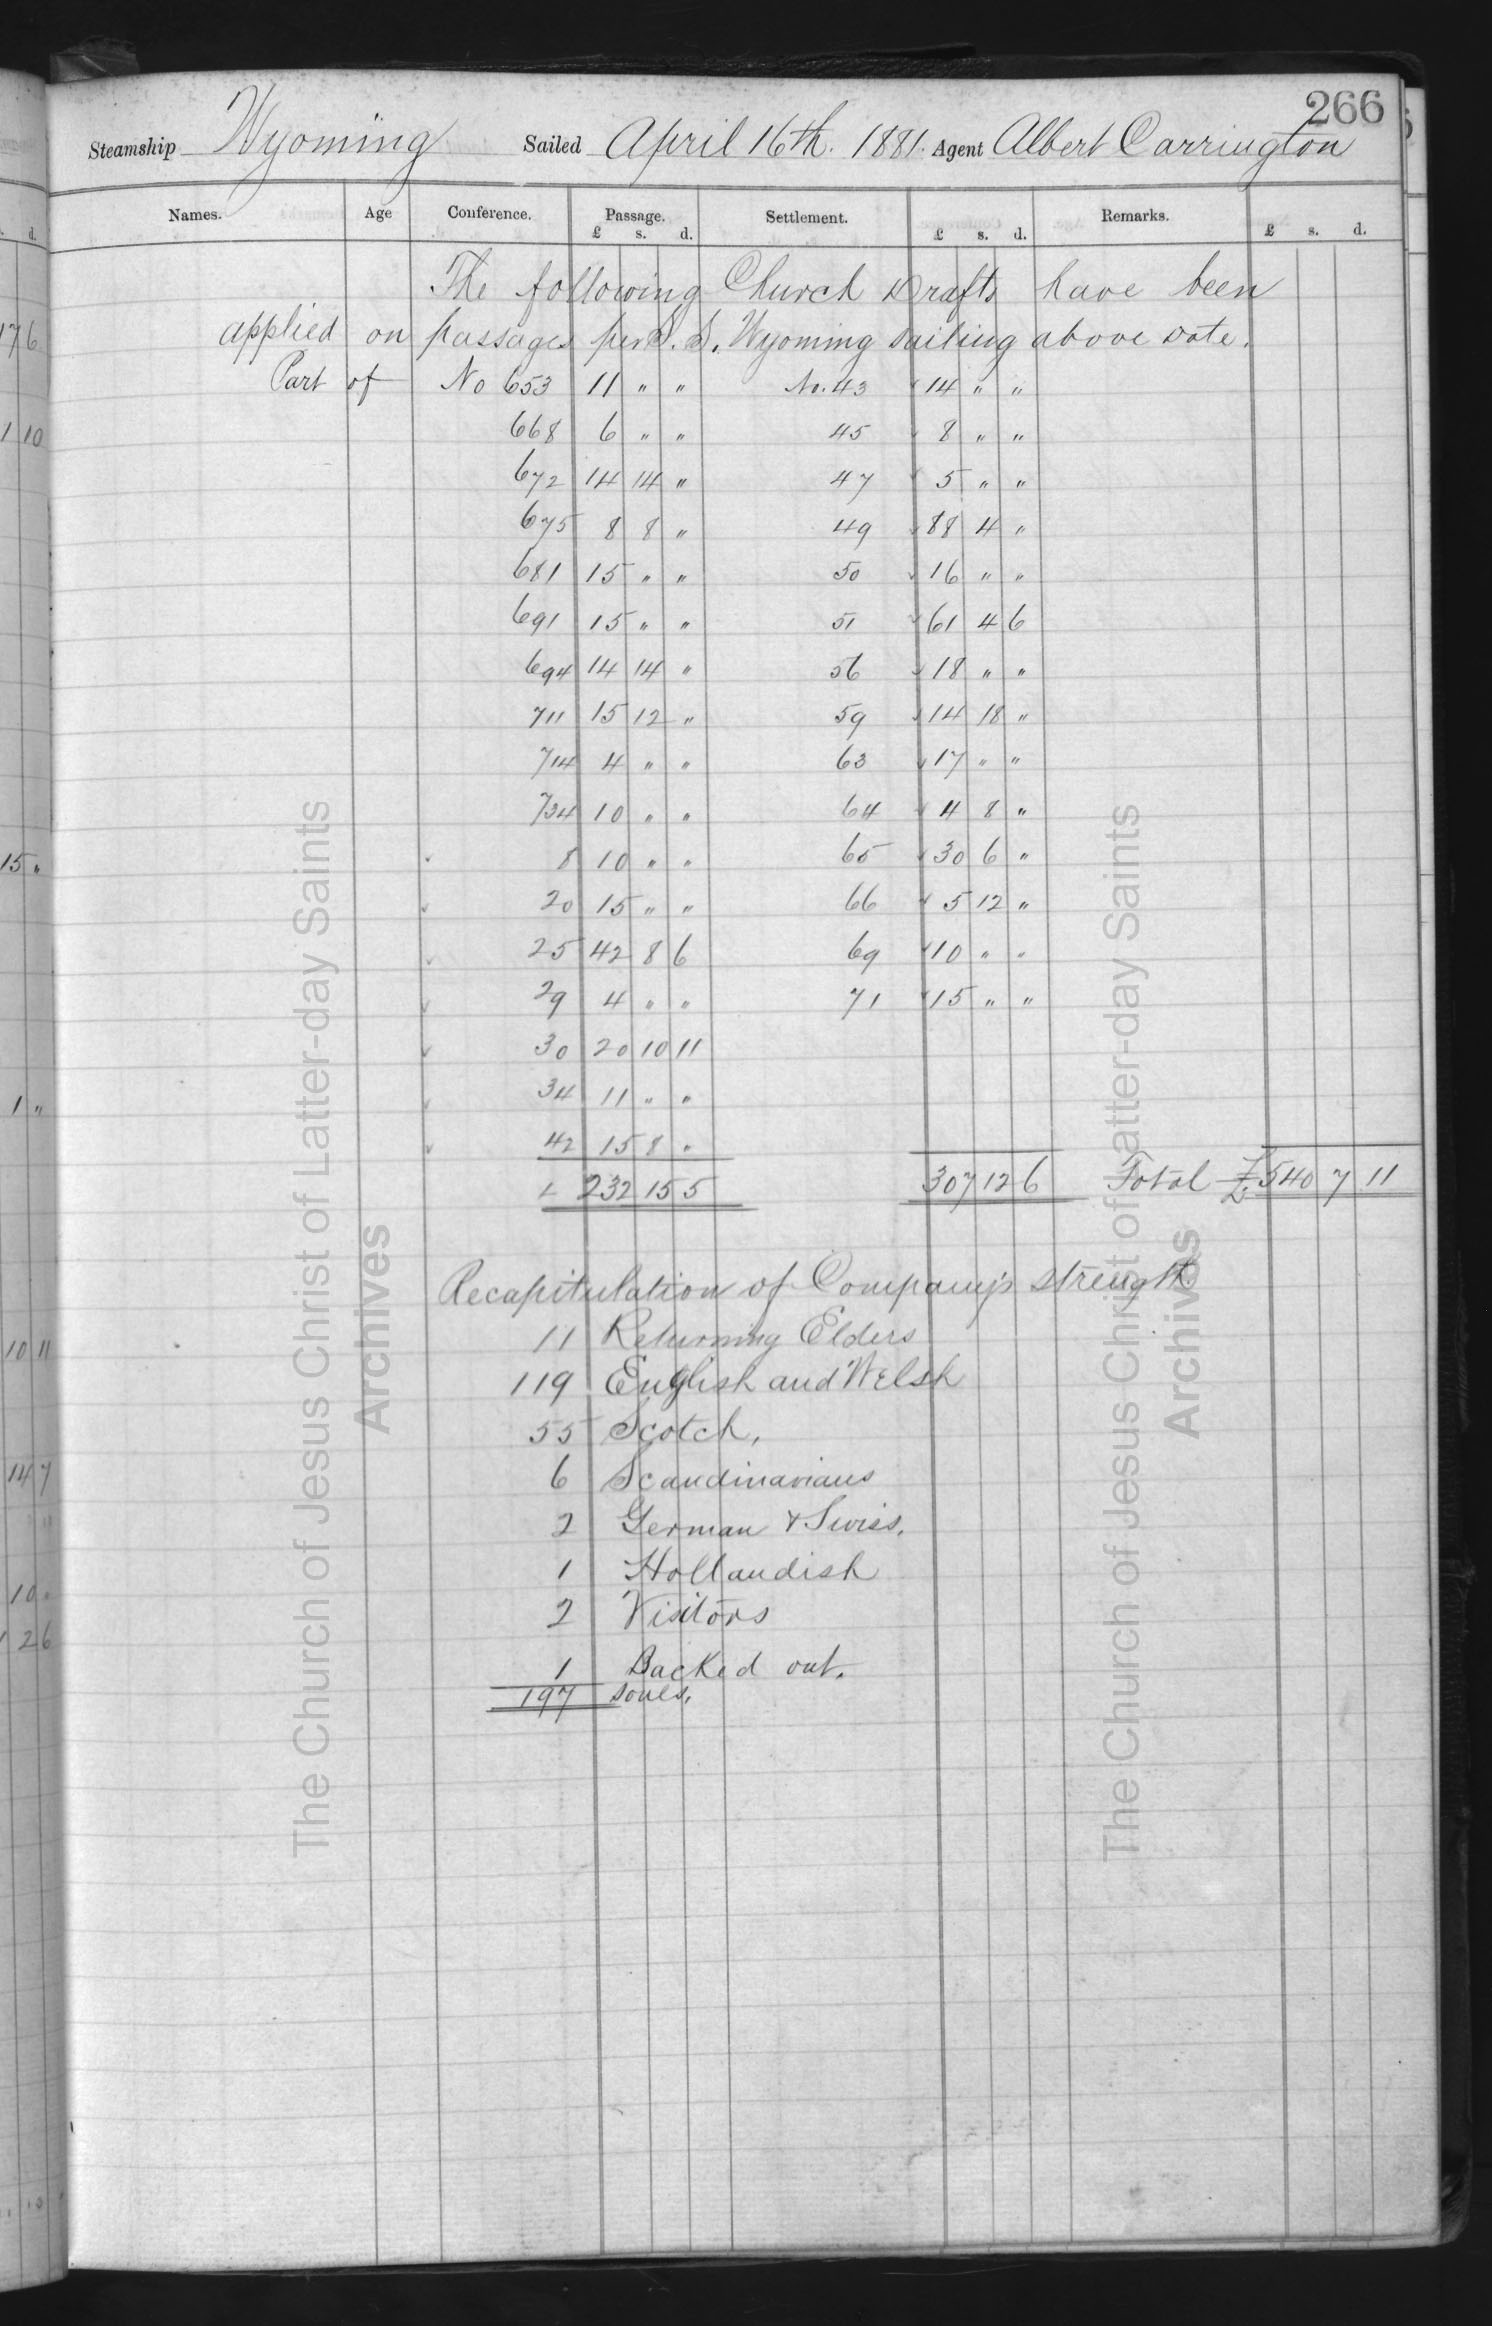 266
Steamship Wyoming Sailed April 16th. 1881. Agent Albert Carrington
Names. Age Conference. Passage. Settlement. Remarks.
£ s. d. £ s. d. £ s. d.
The following Church Drafts have been
applied on passages per S.S. Wyoming sailing above date.
Part of No 653 11 " " No. 43 14 " "
668 6 " " 45 8 " "
672 14 14 " 47 5 " "
675 8 8 " 49 88 4 "
681 15 " " 50 16 " "
691 15 " " 51 61 4 6
694 14 14 " 56 18 " "
711 15 12 " 59 14 18 "
714 4 " " 63 17 " "
734 10 " " 64 4 8 "
8 10 " " 65 30 6 "
20 15 " " 66 5 12 "
25 42 8 6 69 10 " "
29 4 " " 71 15 " "
30 20 10 11
34 11 " "
42 15 8 "
£ 232 15 5 307 12 6 Total £ 540 7 11
Recapitulation of Company's strength
11 Returning Elders
119 English and Welsh
55 Scotch,
6 Scandinavians
2 German & Swiss.
1 Hollandish
2 Visitors
1 Backed out.
197 souls.
The Church of Jesus Christ of Latter-day Saints
Archives
The Church of Jesus Christ of Latter-day Saints
Archives